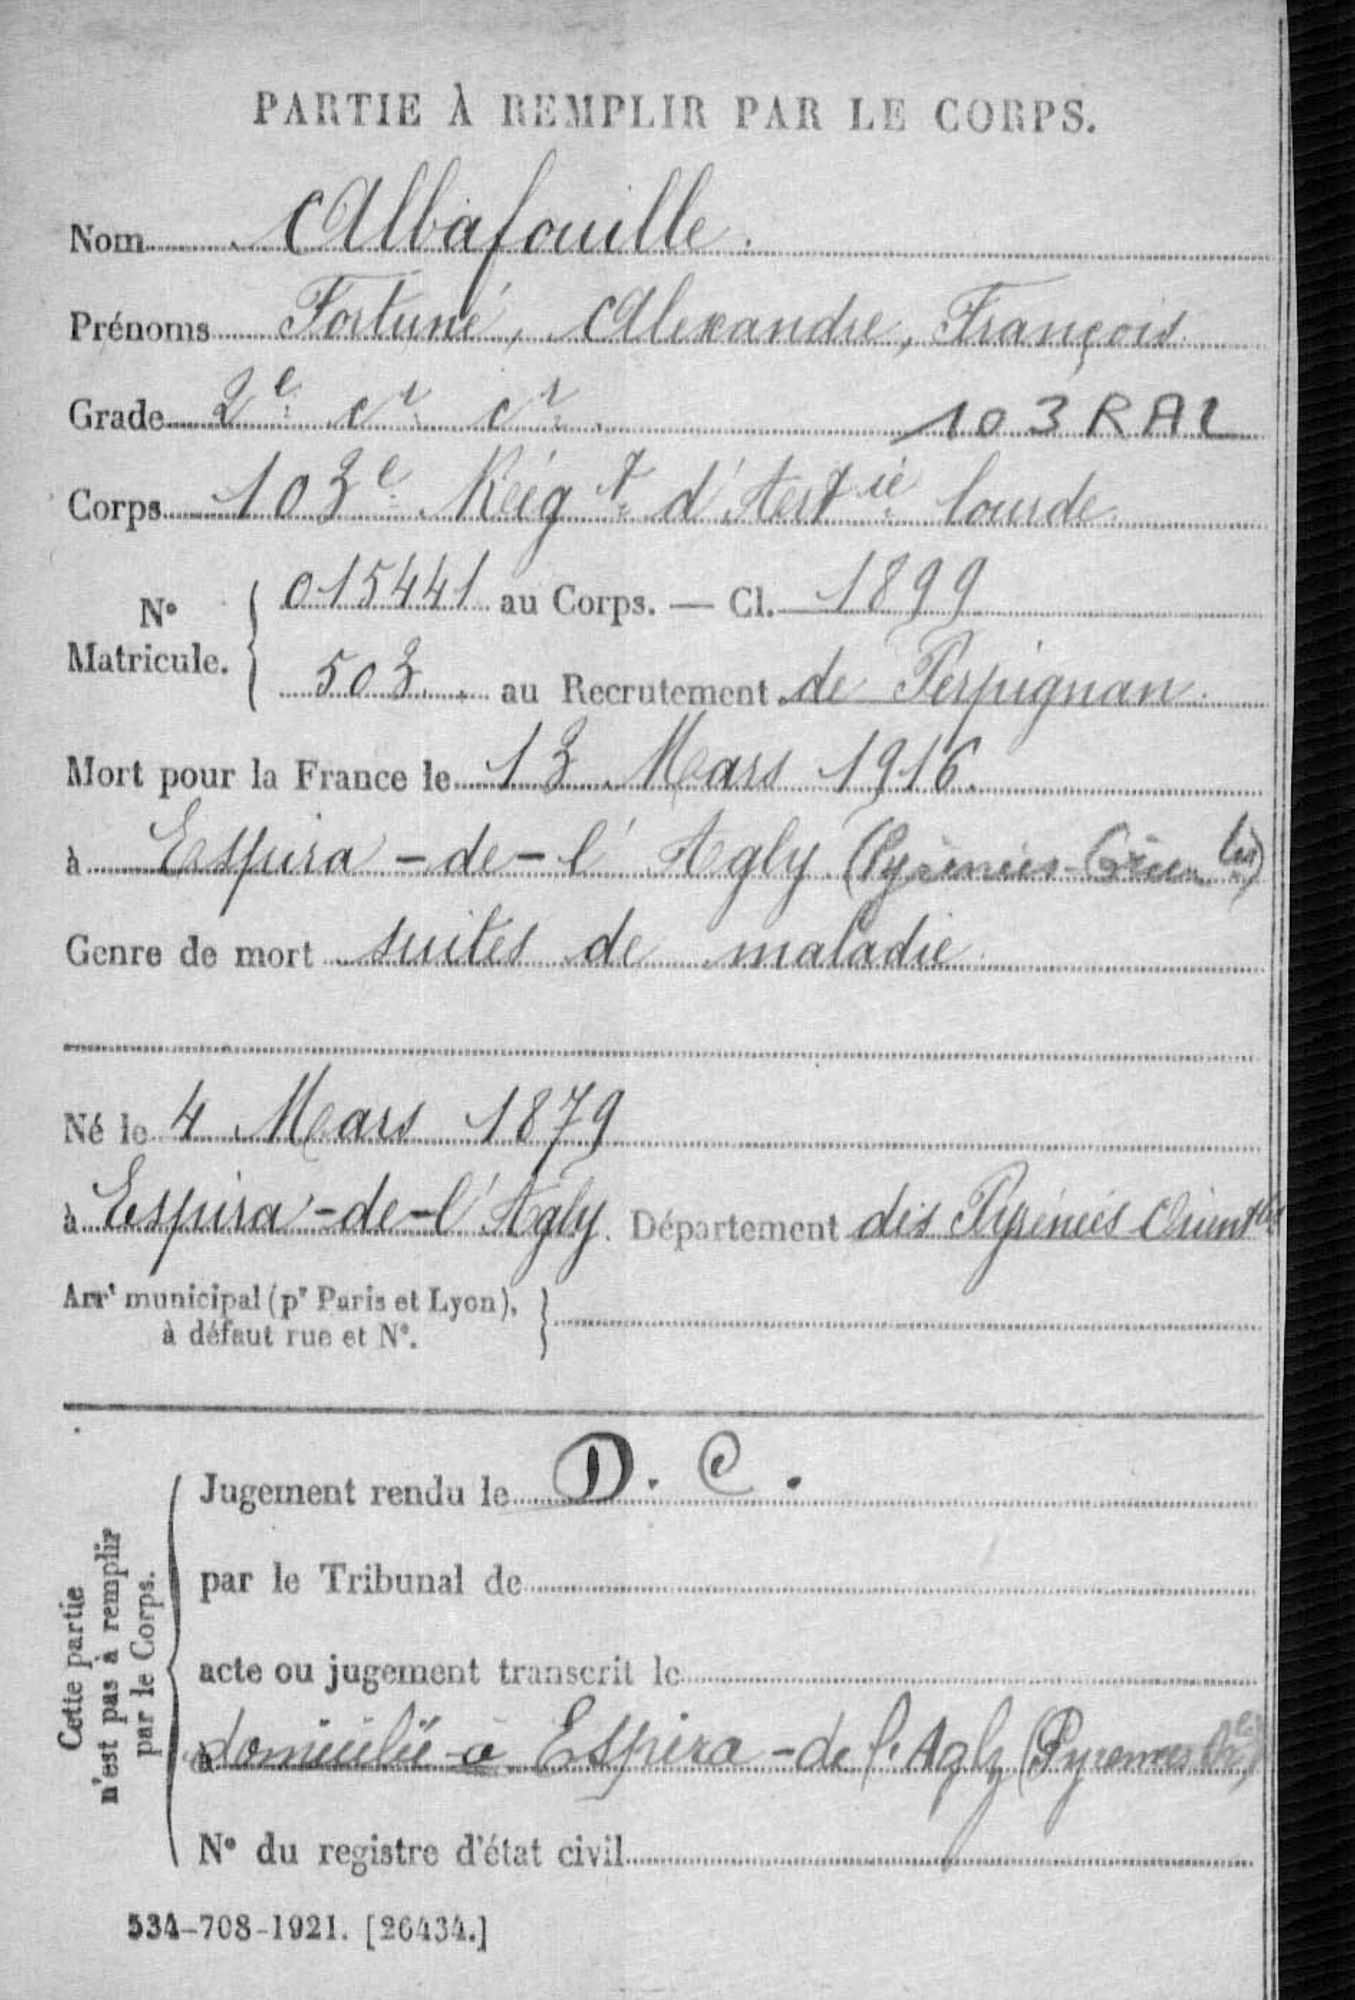 PARTIE À REMPLIR PAR LE CORPS.
Nom Albafouille.
Prénoms Fortuné, Alexandre, François
Grade 2e cr cr 103 RAL
Corps 103e Reigt d'Artie lourde
No Matricule. { 015441 au Corps. — Cl. 1899
503 au Recrutement de Perpignan
Mort pour la France le 13 Mars 1916.
à Espira-de-l'Agly (Pyrénées-Orientles)
Genre de mort suites de maladie
Né le 4 Mars 1879
à Espira-de-l'Agly. Département des Pyrénées Orientles
Arrt municipal (pr Paris et Lyon), à défaut rue et No. }
Cette partie n'est pas à remplir par le Corps.
Jugement rendu le D. C.
par le Tribunal de
acte ou jugement transcrit le
à domicilié à Espira-de l'Agly (Pyrenees Ore)
No du registre d'état civil
534-708-1921. [26434.]